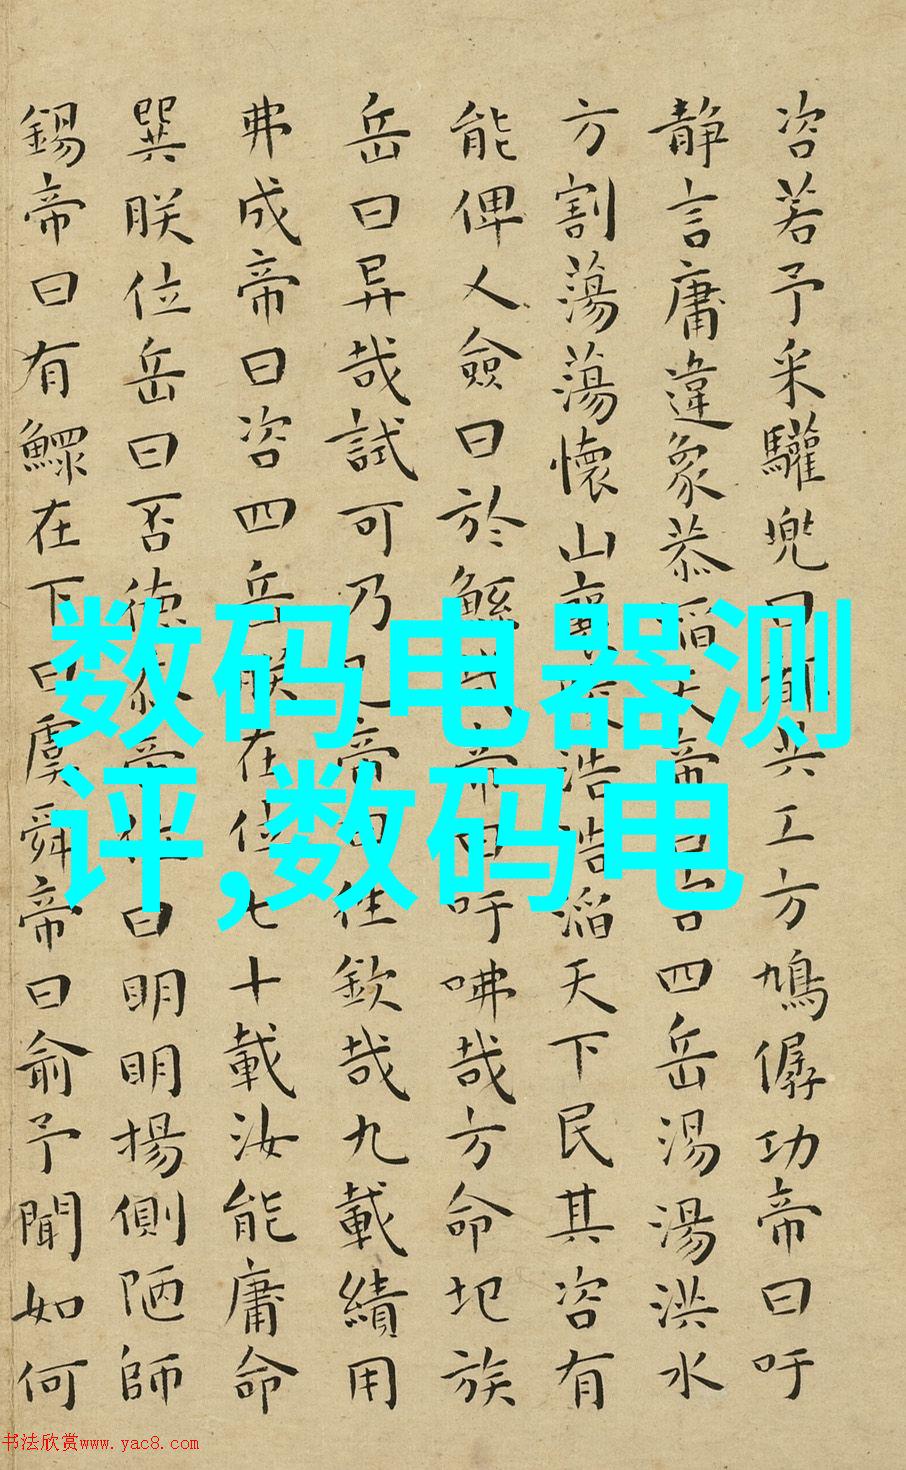 咨若予采驩兜曰都共工方鳩僝功帝曰吁
静言庸違象恭滔天帝曰咨四岳湯湯洪水
方割蕩蕩懷山襄浩浩滔天下民其咨有
能俾乂僉曰於鯀哉帝曰吁咈哉方命圮族
岳曰异哉試可乃已帝曰往欽哉九載績用
弗成帝曰咨四岳朕在位七十載汝能庸命
巽朕位岳曰否德忝帝位曰明明揚側陋師
錫帝曰有鰥在下曰虞舜帝曰俞予聞如何
数码电器测
评,数码电
书法欣赏www.yac8.com